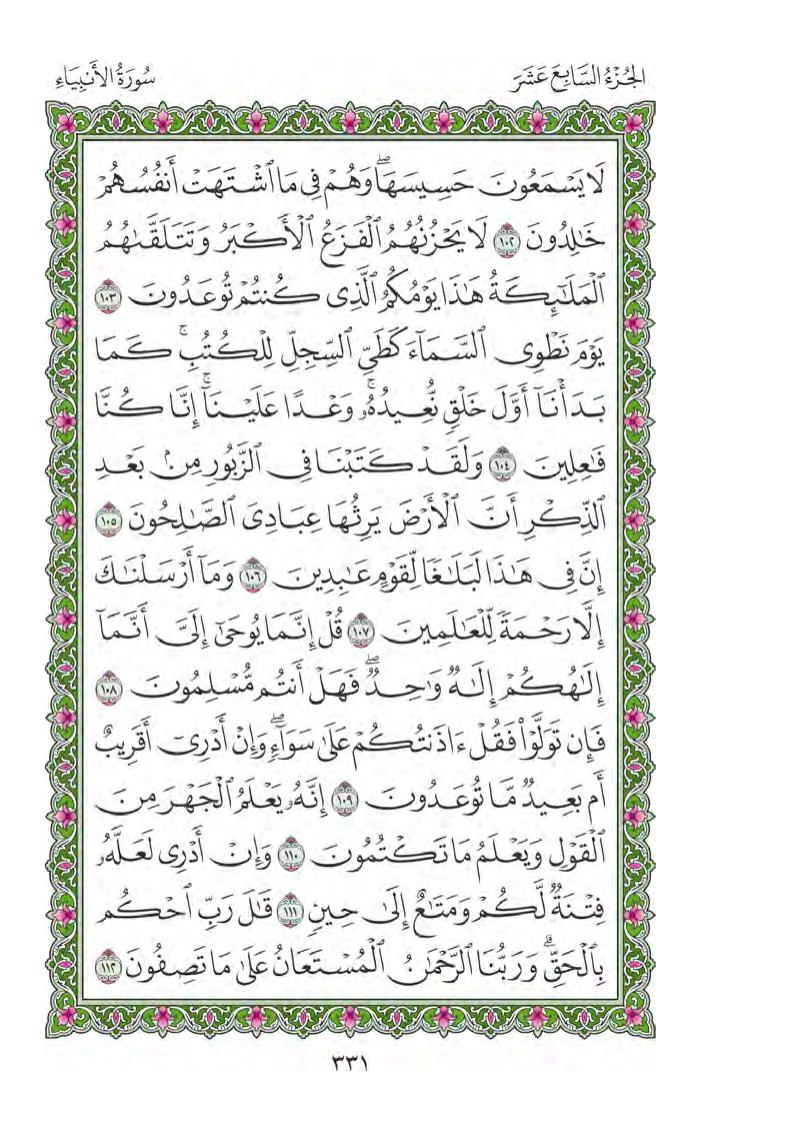 الجُزْءُ السَّابِعَ عَشَرَ
سُورَةُ الأَنْبِيَاءِ
لَا يَسۡمَعُونَ حَسِيسَهَاۖ وَهُمۡ فِي مَا ٱشۡتَهَتۡ أَنفُسُهُمۡ
خَٰلِدُونَ ١٠٢ لَا يَحۡزُنُهُمُ ٱلۡفَزَعُ ٱلۡأَكۡبَرُ وَتَتَلَقَّىٰهُمُ
ٱلۡمَلَٰٓئِكَةُ هَٰذَا يَوۡمُكُمُ ٱلَّذِي كُنتُمۡ تُوعَدُونَ ١٠٣
يَوۡمَ نَطۡوِي ٱلسَّمَآءَ كَطَيِّ ٱلسِّجِلِّ لِلۡكُتُبِۚ كَمَا
بَدَأۡنَآ أَوَّلَ خَلۡقٖ نُّعِيدُهُۥۚ وَعۡدًا عَلَيۡنَآۚ إِنَّا كُنَّا
فَٰعِلِينَ ١٠٤ وَلَقَدۡ كَتَبۡنَا فِي ٱلزَّبُورِ مِنۢ بَعۡدِ
ٱلذِّكۡرِ أَنَّ ٱلۡأَرۡضَ يَرِثُهَا عِبَادِيَ ٱلصَّٰلِحُونَ ١٠٥
إِنَّ فِي هَٰذَا لَبَلَٰغٗا لِّقَوۡمٍ عَٰبِدِينَ ١٠٦ وَمَآ أَرۡسَلۡنَٰكَ
إِلَّا رَحۡمَةٗ لِّلۡعَٰلَمِينَ ١٠٧ قُلۡ إِنَّمَا يُوحَىٰٓ إِلَيَّ أَنَّمَآ
إِلَٰهُكُمۡ إِلَٰهٞ وَٰحِدٞۖ فَهَلۡ أَنتُم مُّسۡلِمُونَ ١٠٨
فَإِن تَوَلَّوۡاْ فَقُلۡ ءَاذَنتُكُمۡ عَلَىٰ سَوَآءٖۖ وَإِنۡ أَدۡرِيٓ أَقَرِيبٌ
أَم بَعِيدٞ مَّا تُوعَدُونَ ١٠٩ إِنَّهُۥ يَعۡلَمُ ٱلۡجَهۡرَ مِنَ
ٱلۡقَوۡلِ وَيَعۡلَمُ مَا تَكۡتُمُونَ ١١٠ وَإِنۡ أَدۡرِي لَعَلَّهُۥ
فِتۡنَةٞ لَّكُمۡ وَمَتَٰعٌ إِلَىٰ حِينٖ ١١١ قَٰلَ رَبِّ ٱحۡكُم
بِٱلۡحَقِّۗ وَرَبُّنَا ٱلرَّحۡمَٰنُ ٱلۡمُسۡتَعَانُ عَلَىٰ مَا تَصِفُونَ ١١٢
٣٣١